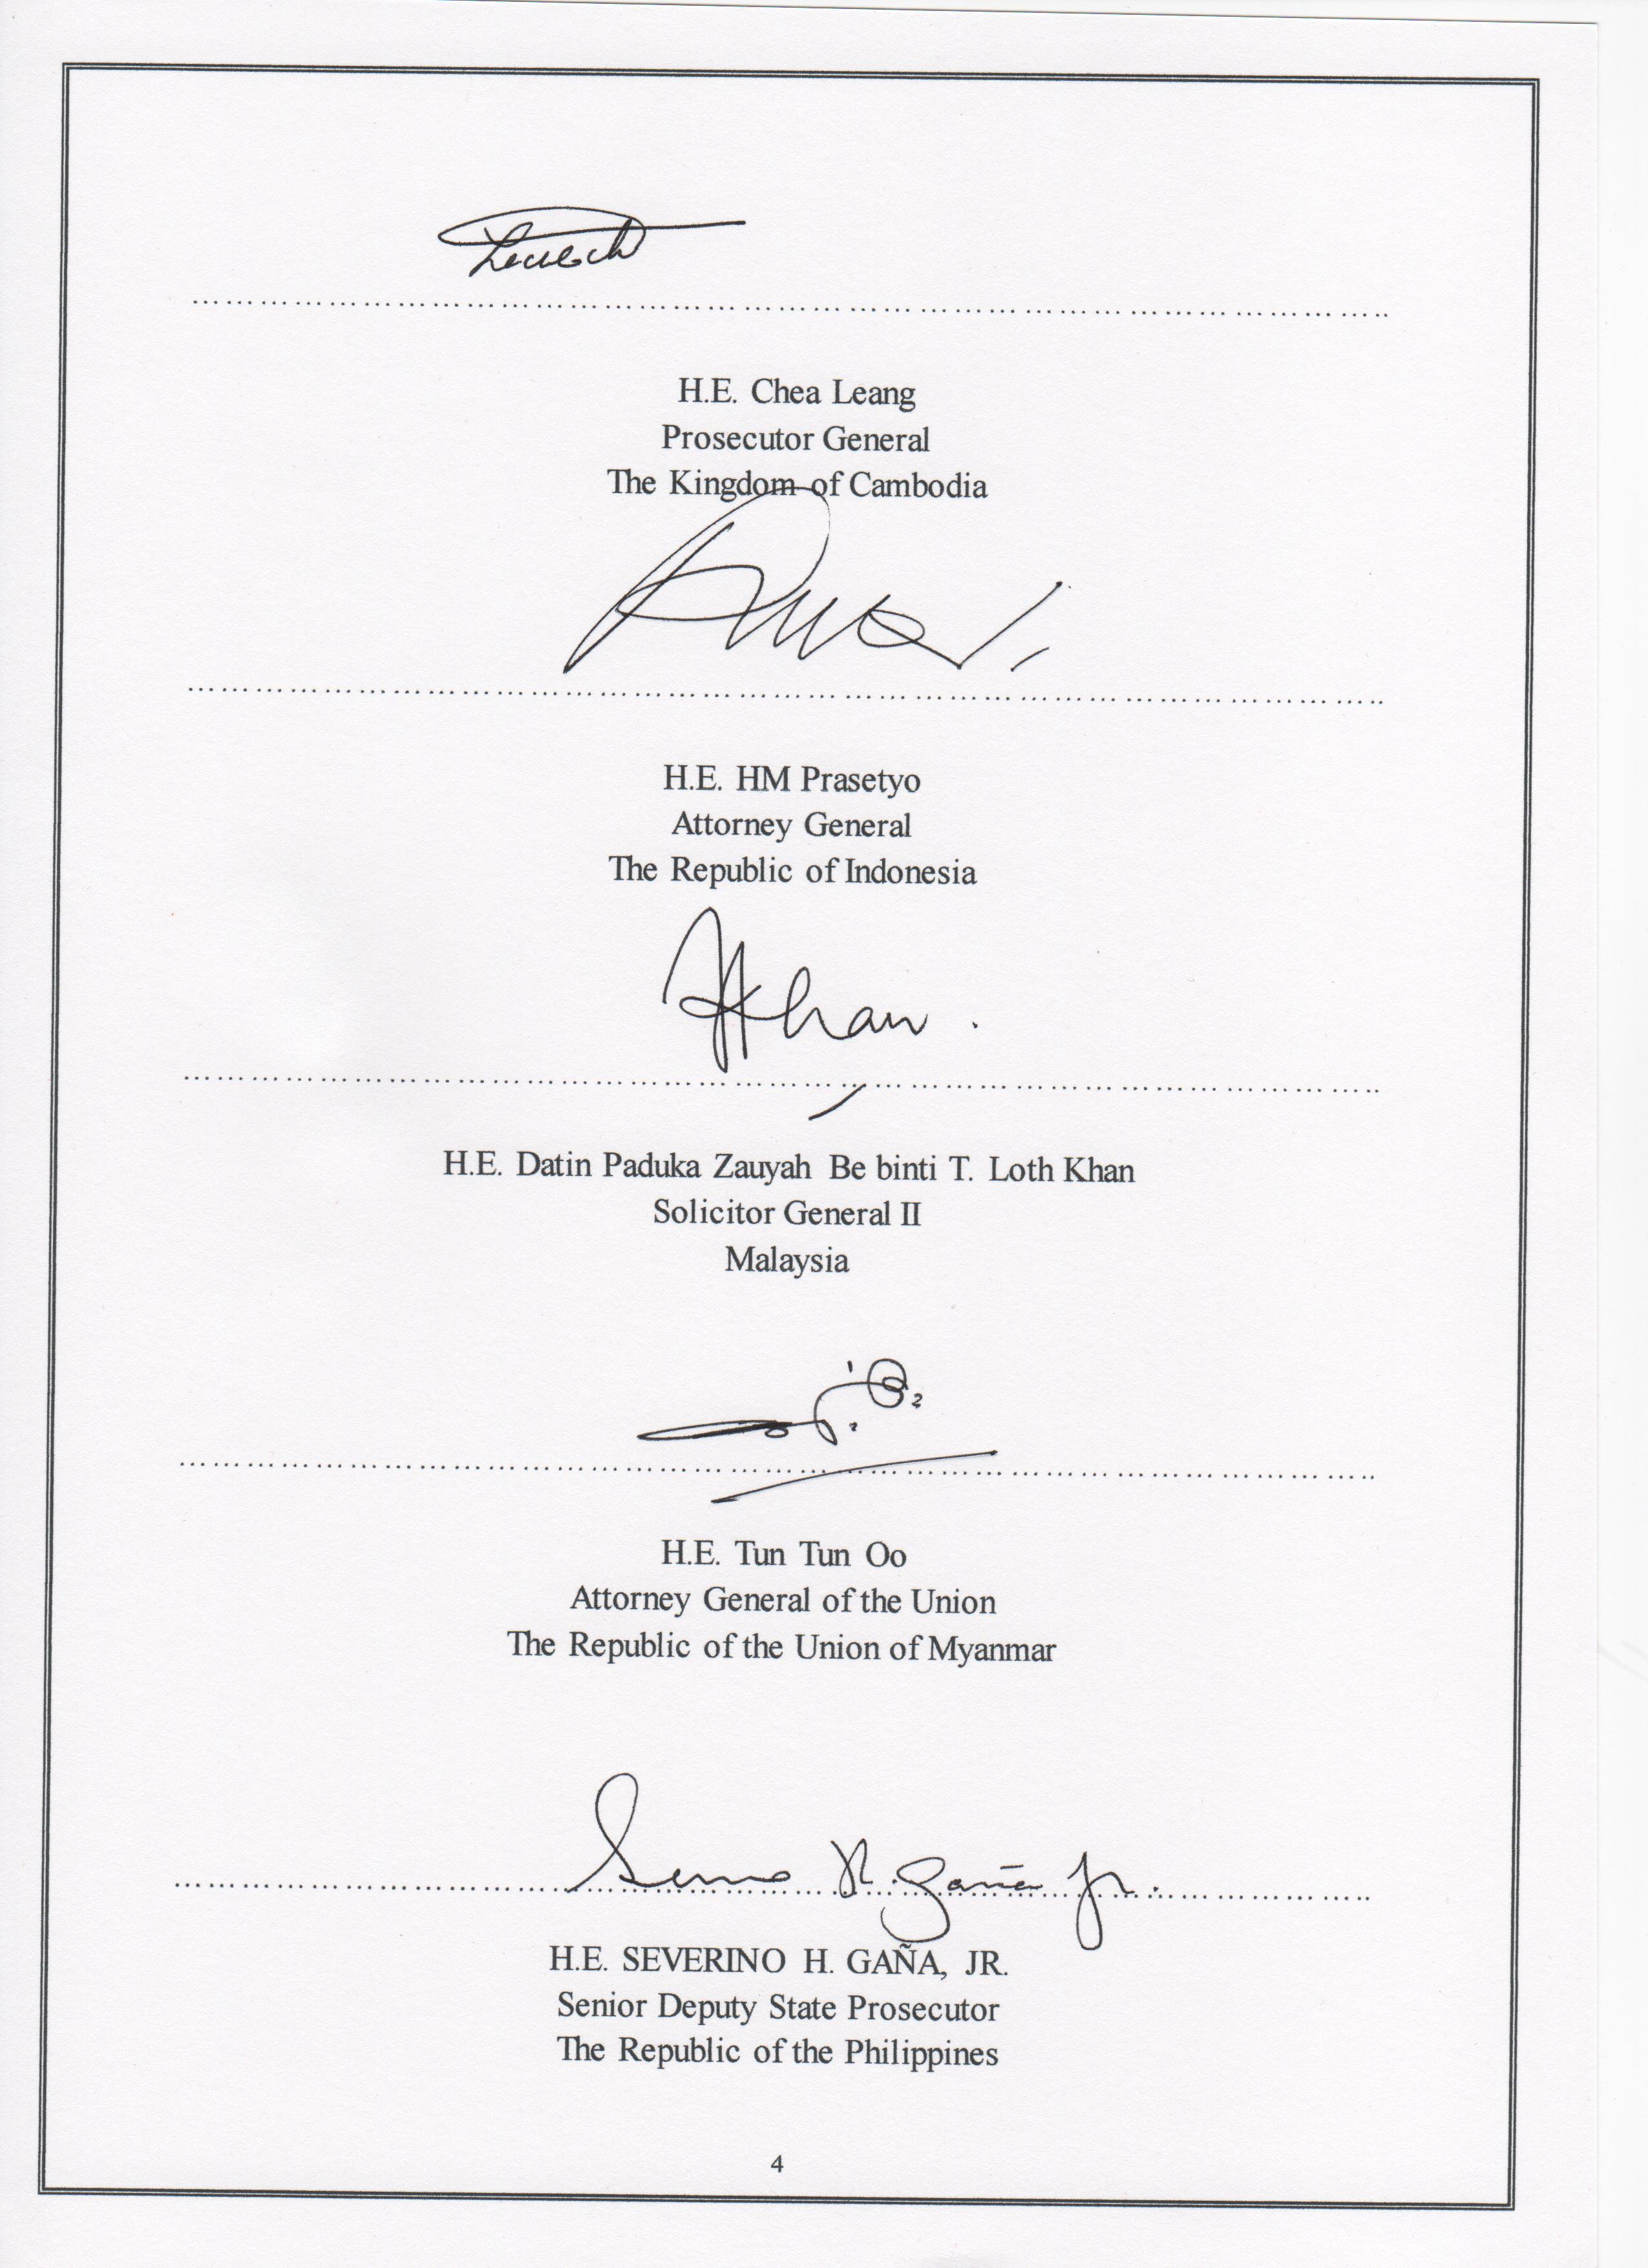 H.E. Chea Leang
Prosecutor General
The Kingdom of Cambodia
H.E. HM Prasetyo
Attorney General
The Republic of Indonesia
Khan.
H.E. Datin Paduka Zauyah Be binti T. Loth Khan
Solicitor General II
Malaysia
H.E. Tun Tun Oo
Attorney General of the Union
The Republic of the Union of Myanmar
Gaña Jr.
H.E. SEVERINO H. GAÑA, JR.
Senior Deputy State Prosecutor
The Republic of the Philippines
4